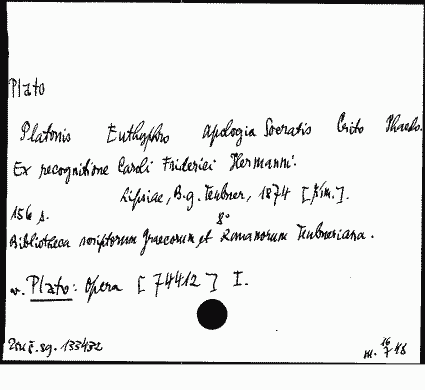 Plato
Platonis Euthyphro Apologia Socratis Crito Phaedo.
Ex recognitione Caroli Friderici Hermanni.
Lipsiae, B.G. Teubner, 1874 [tim.].
156 s. 8°
Bibliotheca scriptorum Graecorum et Romanorum Teubneriana.
v. Plato: Opera [74412] I.
sg. 133432
m. 16 7 48